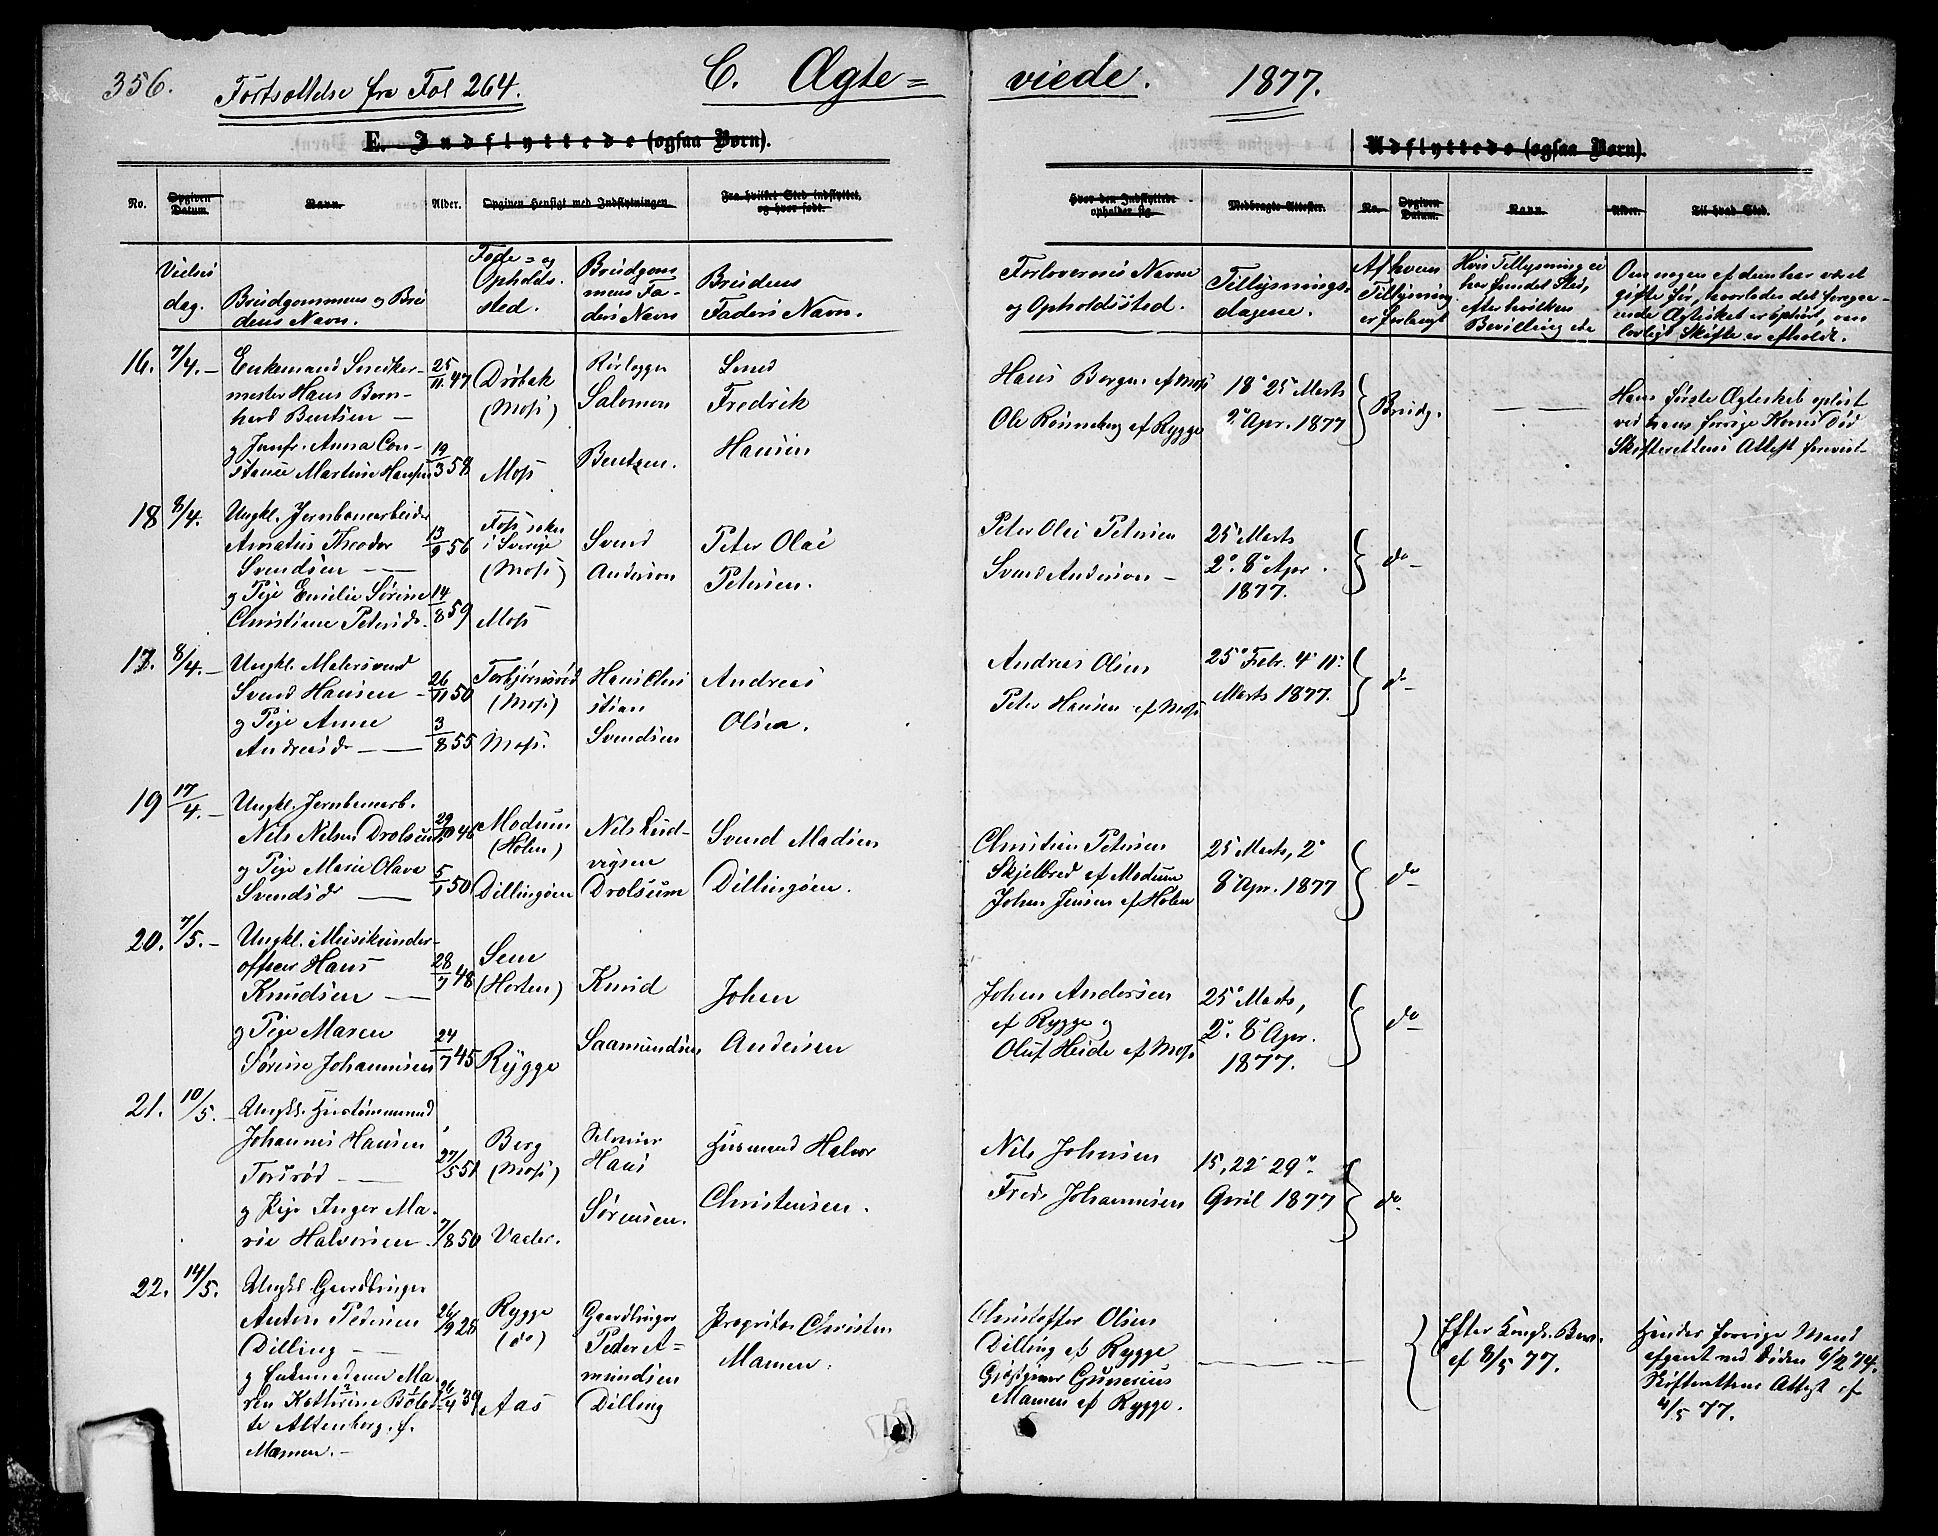 356.
Fortsættelse fra Fol 264.
C. Ægte=
viede.
1877.
E. Indflyttede (ogsaa Børn).
Udflyttede (ogsaa Børn).
No.
Opgiven Datum.
Navn.
Alder.
Opgiven Hensigt med Indflytningen.
Fra hvilket Sted indflyttet, og hvor født.
Hvor den Indflyttede opholder sig.
Medbragte Attester.
No.
Opgiven Datum.
Navn.
Alder.
Til hvad Sted.
Vielses
dag.
Brudgommens og Bru
dens Navn.
Føde= og
Opholds.
sted.
Brudgom
mens Fa-
ders Navn
Brudens
Faders Navn.
Forlovernes Navne
og Opholdssted.
Tillysnings-
dagene.
Af hvem
Tillysning
er forlangt
Hvis Tillysning ei
har fundet Sted,
efter hvilken
Bevilling etc
Om nogen af dem har været
gifte før, hvorledes det foregaa-
ende Ægteskab er ophørt, om
lovligt Skifte er afholdt.
16. 7/4. –
Enkemand Snedker-
mester Hans Bern-
herd Bentsen —
g Jomfr. Anna Con-
stance Martine Hansen
25/11 47
19/3 58
Drøbak
(Moss)
Moss
Rørlegger
Salomon
Bentzen.
Fredrik
Hansen
Hans Berger af Moss
Ole Rønneberg af Rygge
18 25 Marts
2 Apr. 1877
Brudg.
Hans første Ægteskab opløst
ved hans forrige Kones Død
Skifterettens Attest forevist
18 8/4.
Ungkl. Jernbanearbeider
Amatus Theodor
Svendsen —
g Pige Emilie Sørine
Christiane Petersd.
13/9 56
14/8 59
Foss sokn
i Sverige
(Moss)
Moss
Svend
Anderson
Peter Olai
Petersen.
Peter Olai Petersen
Svend Anderson –
25 Marts
2. 8 Apr.
1877.
do
17. 8/4. –
Ungkl. Malersvend
Svend Hansen –
g Pige Anne
Andreasd. —
26/11 50
3/8 55
Torbjørnsrød
(Moss)
Moss.
Hans Chri
stian
Svendsen
Andreas
Olsen.
Andreas Olsen
Peter Hansen af Moss
25 Febr. 4 11
Marts 1877.
do
19 17/4. –
Ungkl. Jernbanearb.
Nils Nilsen Drolsum
g Pige Marie Olava
Svendsd —
29/10 46
5/1 50
Modum
(Hølen)
Dillingøen
Nils Lud-
vigsen
Drolsum
Svend Madsen
Dillingøen.
Christian Petersen
Skjelbred af Modum
Johan Jensen af Hølen
25 Marts, 2
8 Apr. 1877
do
20. 7/5. –
Ungkl. Musikunder-
officer Hans
Knudsen —
g Pige Maren
Sørine Johannesen
28/7 48
24/7 45
Sem
(Horten)
Rygge
Knud
Saamundsen
Johan
Andersen
Johan Andersen
af Rygge og
Oluf Heide af Moss
25 Marts,
2. 8 Apr.
1877.
do
21. 10/5. –
Ungkl. Hustømmermd
Johannes Hansen
Torsrød —
g Pige Inger Ma-
rie Halvorsen
27/5 51
7/8 50
Berg
(Moss)
Vaaler.
Selveier
Hans
Sørensen.
Husmand Halvor
Christensen.
Nils Johnsen
Fredr Johannesen
15, 22 29
April 1877
do
22. 14/5.
Ungkl Gaardbruger
Anton Pedersen
Dilling —
g Enkemadame Ma-
ren Kathrine Bolet-
te Altenberg. f.
Mamen. –
26/9 28
26/4 39
Rygge
(do)
Aas
Gaardbruger
Peder A=
mundsen
Dilling
Proprietær Christen
Mamen.
Christoffer Olsen
Dilling af Rygge
Gunerius
Mamen af Rygge.
Efter Kongl. Bev.
af 8/5 77.
Hendes forrige Mand
afgaat ved Døden 6/12 74.
Skifterettens Attest af
4/5 77.